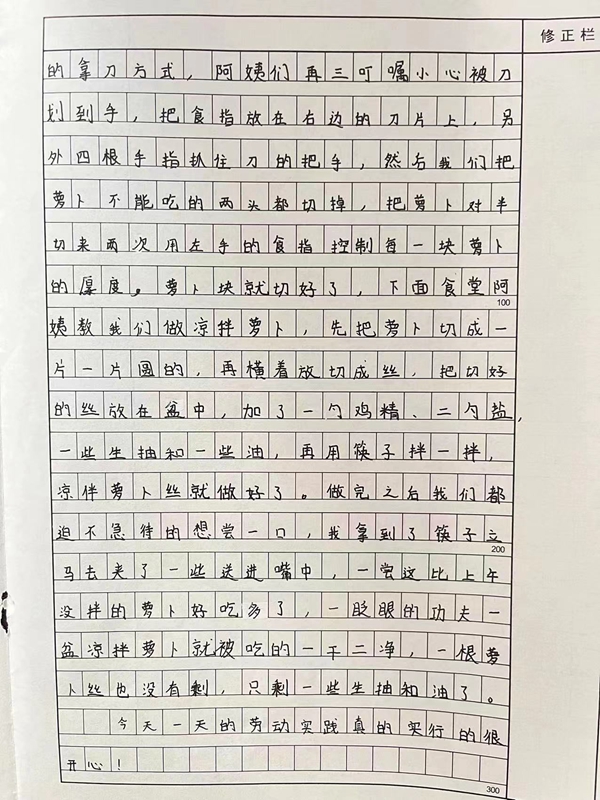 修正栏
的拿刀方式，阿姨们再三叮嘱小心被刀
划到手，把食指放在右边的刀片上，另
外四根手指扒住刀的把手，然后我们把
萝卜不能吃的两头都切掉，把萝卜对半
切来两次用左手的食指控制每一块萝卜
的厚度。萝卜块就切好了，下面食堂阿
100
姨教我们做凉拌萝卜，先把萝卜切成一
片一片圆的，再横着放切成丝，把切好
的丝放在盆中，加了一勺鸡精、二勺盐，
一些生抽和一些油，再用筷子拌一拌，
凉伴萝卜丝就做好了。做完之后我们都
迫不急待的想尝一口，我拿到了筷子立
200
马去夹了一些送进嘴中，一尝这比上午
没拌的萝卜好吃多了，一眨眼的功夫一
盆凉拌萝卜就被吃的一干二净，一根萝
卜丝也没有剩，只剩一些生抽和油了。
今天一天的劳动实践真的实行的很
开心！
300